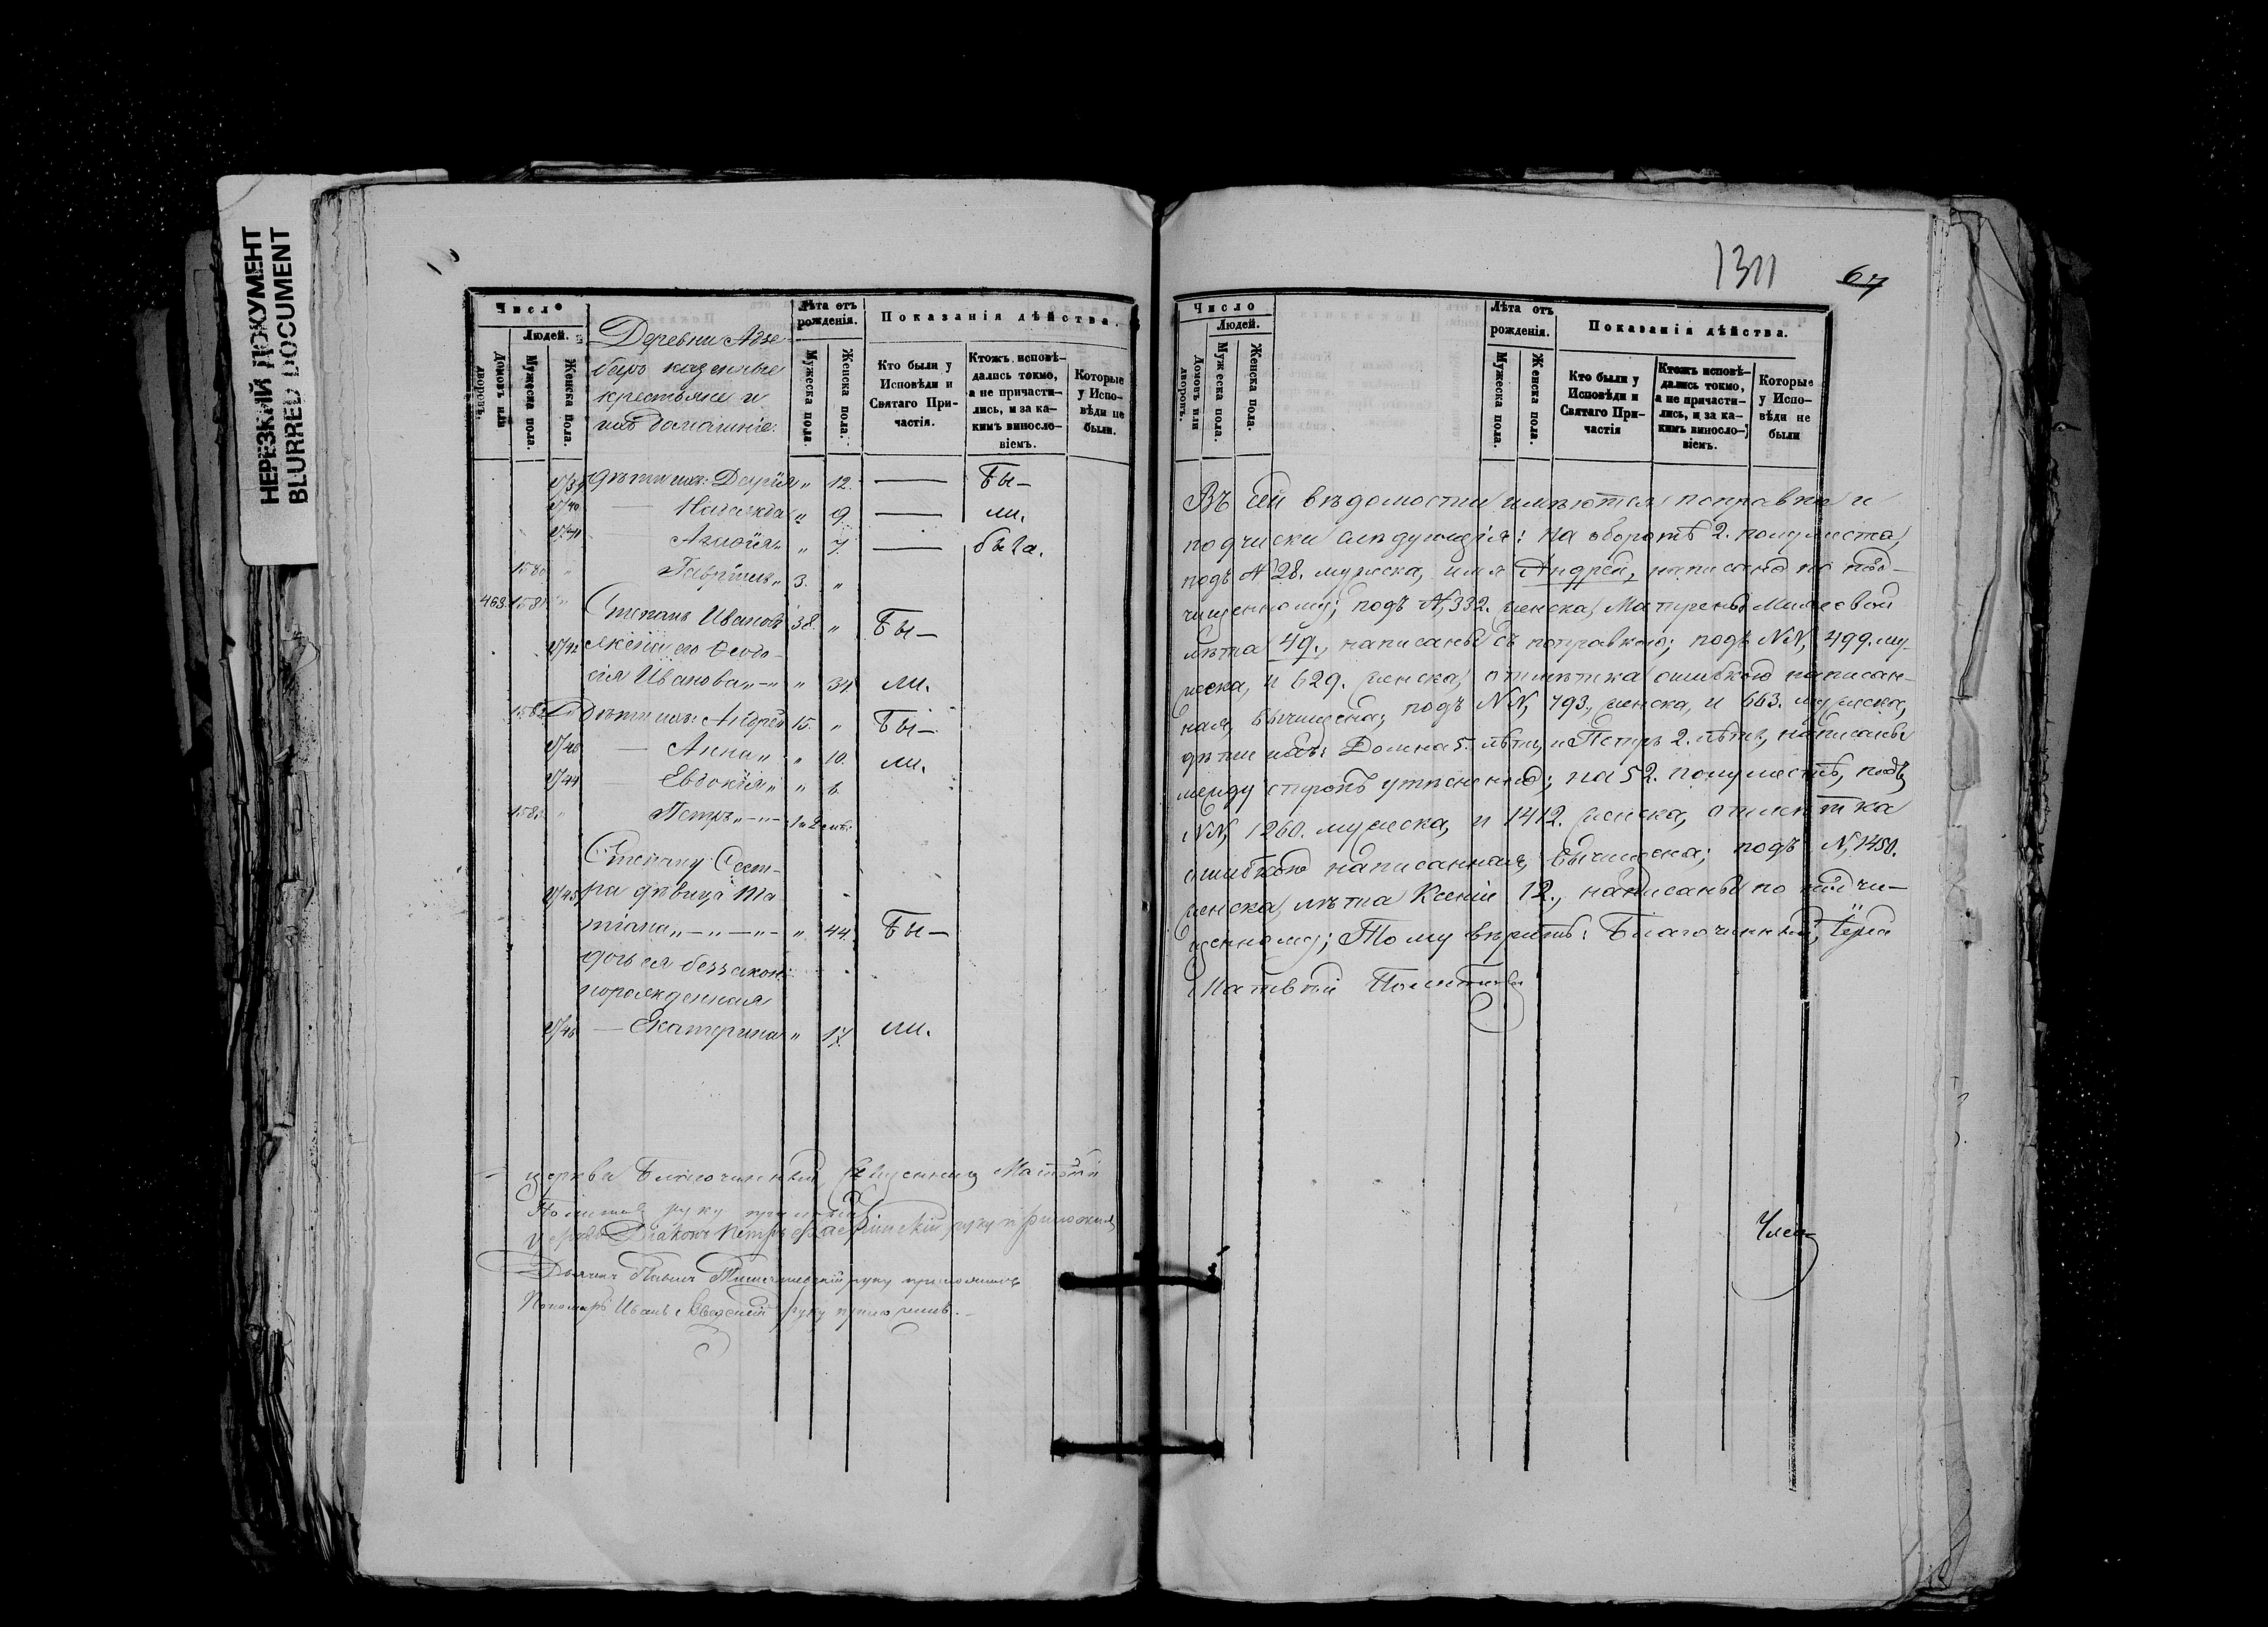 НЕРЕЗКИЙ ДОКУМЕНТ
BLURRED DOCUMENT
Число
Людей.
Домовъ или дворовъ.
Мужеска пола.
Женска пола.
Деревни
казенные
крестьяне и
ихъ домашніе:
Лѣта отъ рожденія.
Мужеска пола.
Женска пола.
Показанія дѣйства.
Кто были у Исповѣди и Святаго Причастія.
Ктожъ исповѣдались токмо, а не причастились, и за какимъ винословіемъ.
Которые у Исповѣди не были.
дѣти ихъ: Дарія „ 12. — Бы–
— „ 9. — ли.
„ 7. — была.
1580 „ Гавріилъ „ 3. „
468. 1581 „ Степанъ Ивановъ 38. „ Бы–
жена его Ѳеодо–
сія Иванова „–„ „ 34 ли.
1582 Дѣти ихъ: Андрей 15. „ Бы–
— Анна „ „ 10. ли.
— Евдокія „ „ 6.
Петръ „–„–
Степану Сест–
ра дѣвица Та
тіана „–„–„– „ 44. Бы–
дочь ея беззакон:
порожденная
— Екатерина „ 17. ли.
церкви Благочинный Священникъ Матвѣй
руку приложилъ
Діаконъ Петръ руку приложилъ
Дьячекъ Павелъ руку приложилъ
Пономарь Иванъ руку приложилъ.
1311
67
Число
Людей.
Домовъ или дворовъ.
Мужеска пола.
Женска пола.
Лѣта отъ рожденія.
Мужеска пола.
Женска пола.
Показанія дѣйства.
Кто были у Исповѣди и Святаго Причастія
Ктожъ исповѣдались токмо, а не причастились, и за какимъ винословіемъ.
Которые у Исповѣди не были
Въ сей вѣдомости имѣются поправки и
подчистки слѣдующія: на оборотѣ 2. полулиста,
подъ N 28. мужеска, имя Андрей, написано по под–
чищенному; подъ N, 332. женска, Матрены
лѣта 49., написаны съ поправкою; подъ NN, 499. му–
жеска, и 629. женска, отмѣтка ошибкою написан–
ная, вычищена; подъ NN, 793, женска, и 663. мужеска,
дѣти ихъ: Домна 5. лѣтъ, и Петръ 2. лѣтъ, написаны
между строкъ утѣсненно; на 52. полулистѣ, подъ
NN, 1260. мужеска, и 1412. женска, отмѣтка
ошибкою написанная, вычищена; подъ N, 1450.
женска, лѣта Ксеніи 12., написаны по подчи–
щенному; Тому вѣрить: Благочинный, Іерей
Матвѣй